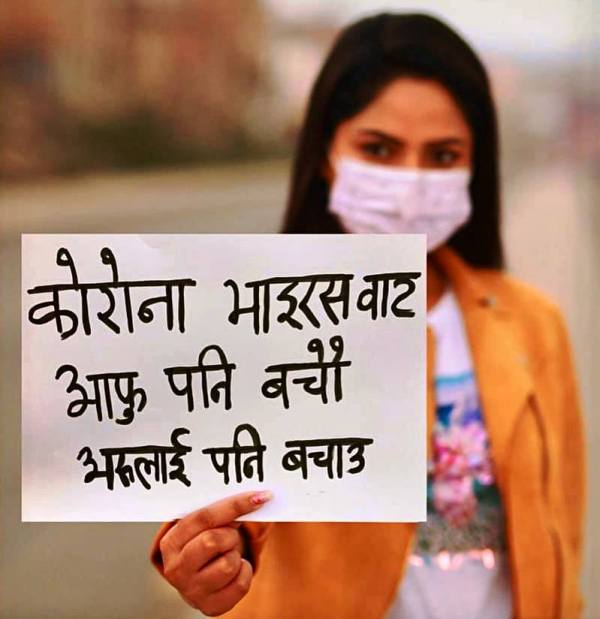 कोरोना भाइरस वाट
आफु पनि बचौ
अरुलाई पनि बचाउ